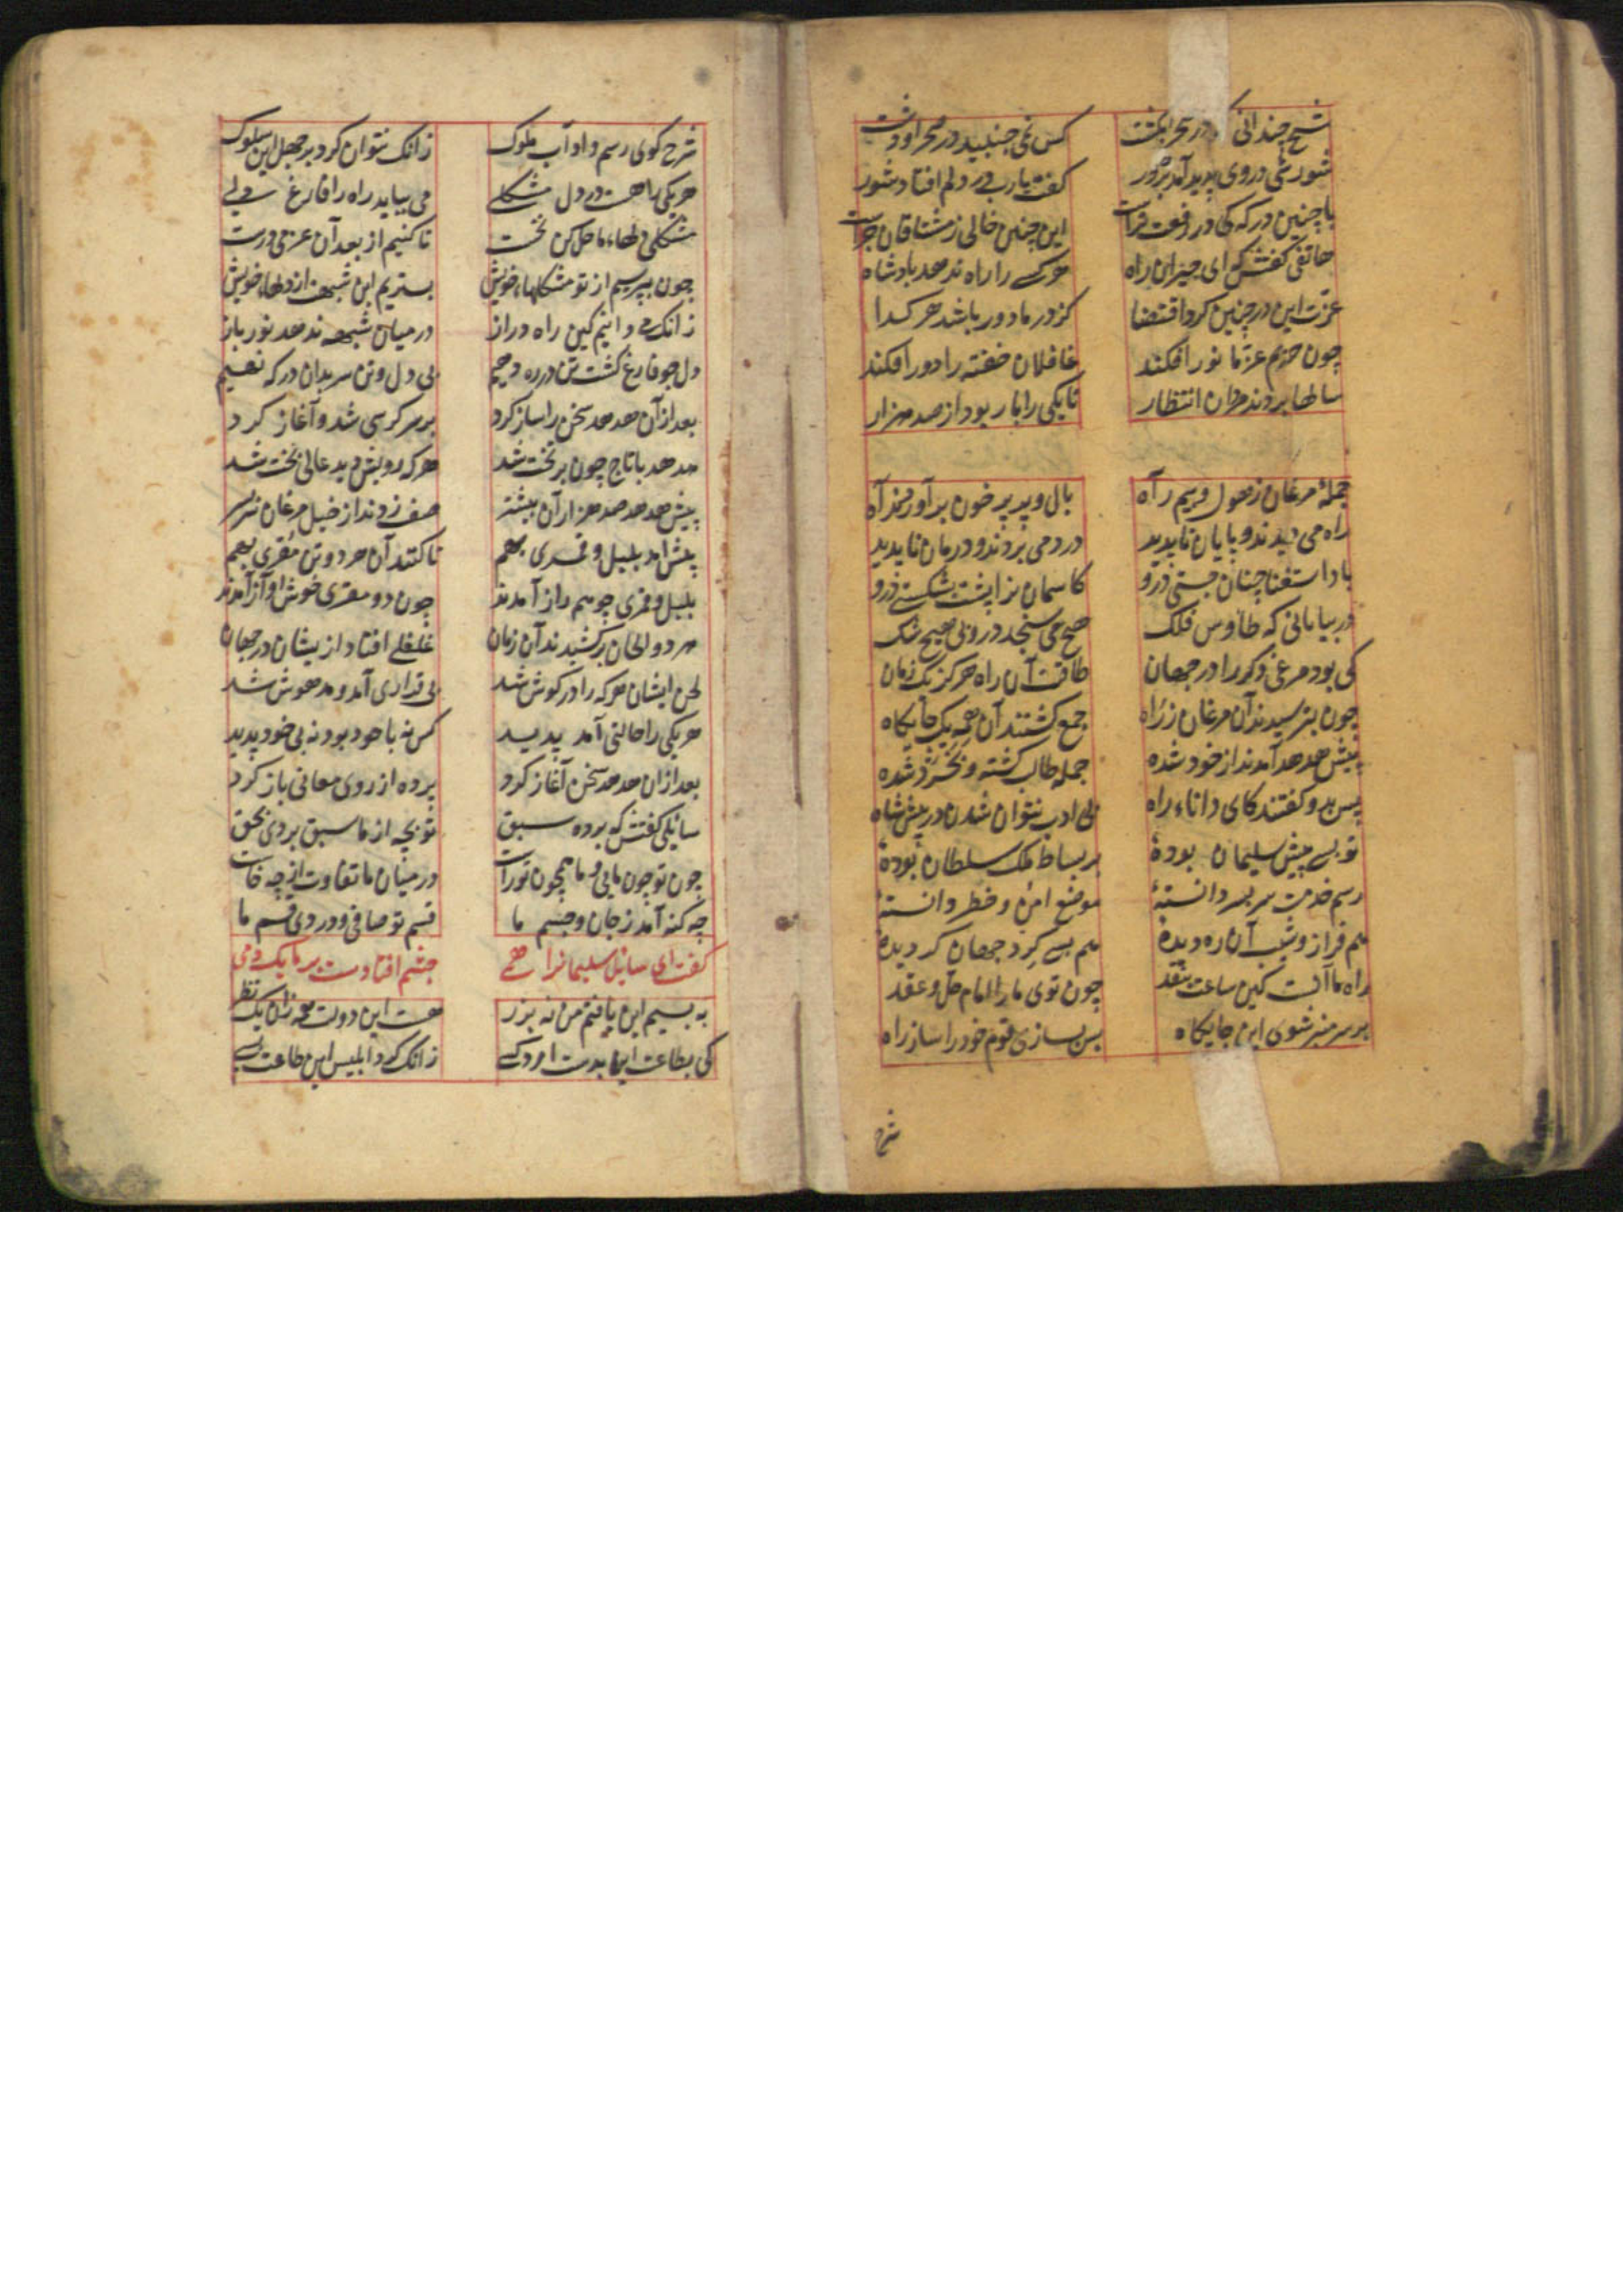 شیخ چندانی که در صحرا بکشت کس نمی جنبید در صحرا و دشت
شورشی در وی پدید آمد بزور گفت یارب در دلم افتاد شور
با چنین درکه که در رفعت تراست این چنین خالی ز مشتاقان چراست
هاتفی گفتش که ای حیران راه هر کسی را راه ندهد بادشاه
عزت این در چنین کرد اقتضا کز در ما دور باشد هر کدا
چون حریم عز ما نور افکند غافلان خفته را دور افکند
سالها بردند مردان انتظار تا یکی را بار بود از صد هزار
جملهٔ مرغان ز هول و بیم راه بال و پر پر خون برآوردند آه
راه می دیدند و پایان ناپدید درد می بردند و درمان ناپدید
باد استغنا چنان جستی درو کاسمان را پشت بشکستی درو
در بیابانی که طاوس فلک هیچ می سنجد درو بی هیچ شک
کی بود مرغی دکر را در جهان طاقت آن راه هرکز یک زمان
چون بترسیدند آن مرغان ز راه جمع کشتند آن همه یک جایکاه
پیش هدهد آمدند از خود شده جمله طالب کشته و بخرد شده
پس بدو کفتند کای داناء راه بی ادب نتوان شدن در پیش شاه
تو بسی پیش سلیمان بودهٔ بر بساط ملک سلطان بودهٔ
رسم خدمت سر بسر دانستهٔ موضع امن و خطر دانستهٔ
هم فراز و شیب آن ره دیدهٔ هم بسی کرد جهان کردیدهٔ
رای ما آنست کین ساعت بنقد چون توی ما را امام حل و عقد
بر سر منبر شوی این جایکاه پس بسازی قوم خود را ساز راه
شرح
شرح کوی رسم و اداب ملوک زانک نتوان کرد بر جهل این سلوک
هر یکی را هست در دل مشکلی می بیاید راه را فارغ دلی
مشکل دلهاء ما حل کن نخست تا کنیم از بعد آن عزمی درست
چون بپرسیم از تو مشکلهاء خویش بستریم این شبهت از دلهاء خویش
زانک می دانیم کین راه دراز در میان شبهه ندهد نور باز
دل چو فارغ کشت تن در ره دهیم بی دل و تن سر بدان درکه نهیم
بعد از آن هدهد سخن را ساز کرد بر سر کرسی شد و آغاز کرد
هدهد با تاج چون بر تخت شد هر که رویش دید عالی بخت شد
پیش هدهد صد هزاران بیشتر صف زدند از خیل مرغان سر بسر
پیش آمد بلبل و قمری بهم تا کنند آن هر دو تن مقری بهم
بلبل و قمری چو هم راز آمدند چون دو مقری خوش اواز آمدند
هر دو الحان برکشیدند آن زمان غلغلی افتاد ازیشان در جهان
لحن ایشان هرکه را در کوش شد بی قراری آمد و مدهوش شد
هر یکی را حالتی آمد پدید کس نه با خود بود نه بی خود پدید
بعد ازان هدهد سخن آغاز کرد پرده از روی معانی باز کرد
سائلی کفتش که برده سبق تو بچه از ما سبق بردی بحق
چون تو جون مایی و ما همچون تو راست در میان ما تفاوت از چه خاست
چه کنه آمد ز جان و جسم ما قسم تو صافی و دردی قسم ما
کفت ای سائل سلیمانرا همی چشم افتادست بر ما یک دمی
نه بسیم این یافتم من نه بزر هست این دولت همه زان یک نظر
کی بطاعت این بدست ارد کسی زانک کرد ابلیس این طاعت بسی